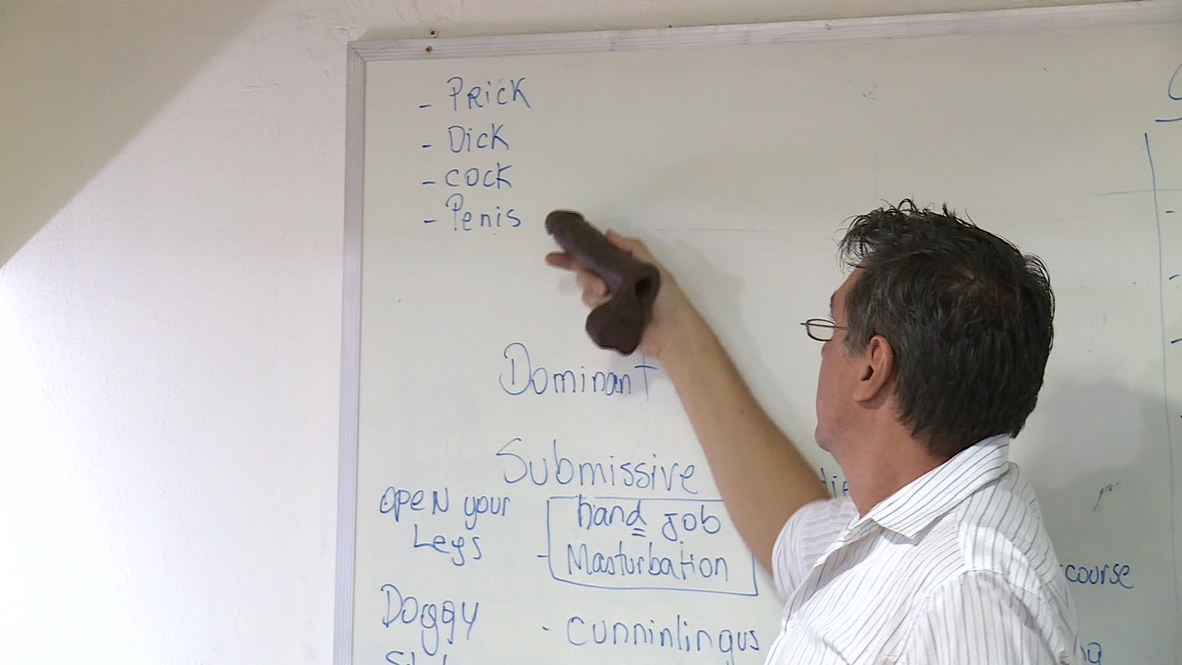 - PRicK
- Dick
- cock
- Penis
Dominant
Submissive
OPEN your
Legs
hand job
- Masturbation
Doggy
- cunninlingus
course